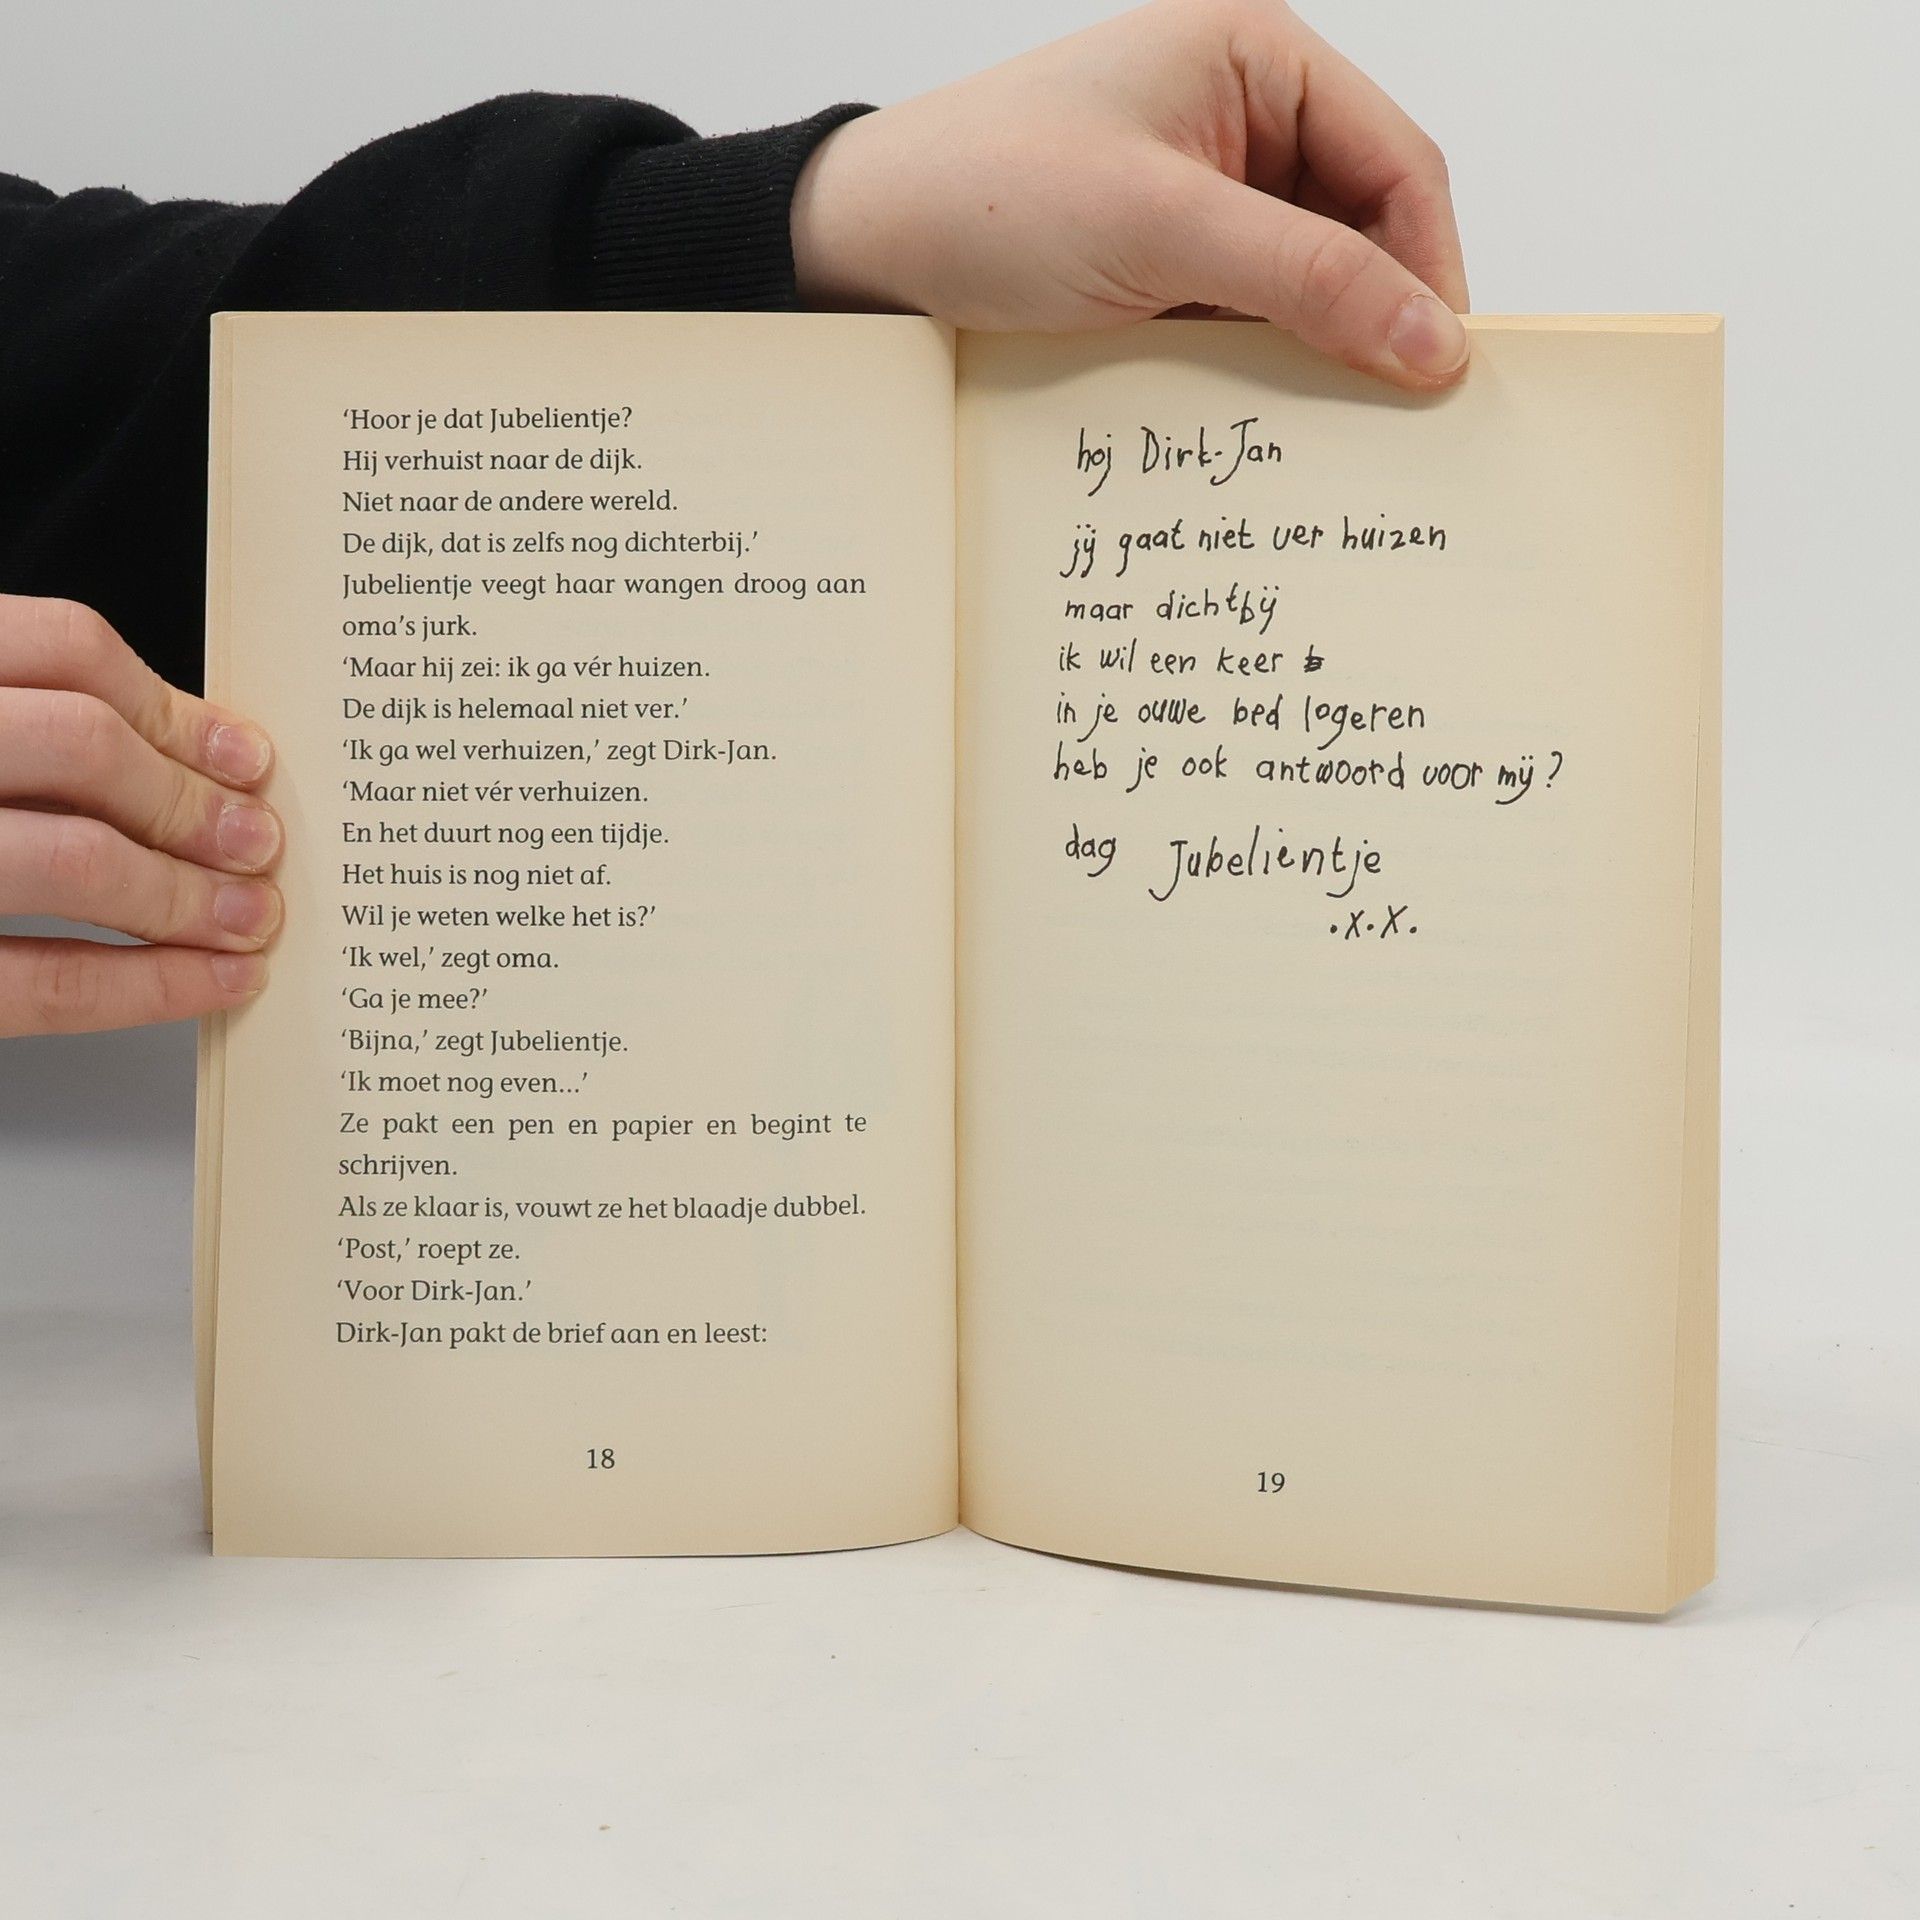 ‘Hoor je dat Jubelientje?
Hij verhuist naar de dijk.
Niet naar de andere wereld.
De dijk, dat is zelfs nog dichterbij.’
Jubelientje veegt haar wangen droog aan
oma’s jurk.
‘Maar hij zei: ik ga vér huizen.
De dijk is helemaal niet ver.’
‘Ik ga wel verhuizen,’ zegt Dirk-Jan.
‘Maar niet vér verhuizen.
En het duurt nog een tijdje.
Het huis is nog niet af.
Wil je weten welke het is?’
‘Ik wel,’ zegt oma.
‘Ga je mee?’
‘Bijna,’ zegt Jubelientje.
‘Ik moet nog even...’
Ze pakt een pen en papier en begint te
schrijven.
Als ze klaar is, vouwt ze het blaadje dubbel.
‘Post,’ roept ze.
‘Voor Dirk-Jan.’
Dirk-Jan pakt de brief aan en leest:
18
hoj Dirk-Jan
jij gaat niet ver huizen
maar dichtbij
ik wil een keer
in je ouwe bed logeren
heb je ook antwoord voor mij?
dag Jubelientje
.x.X.
19